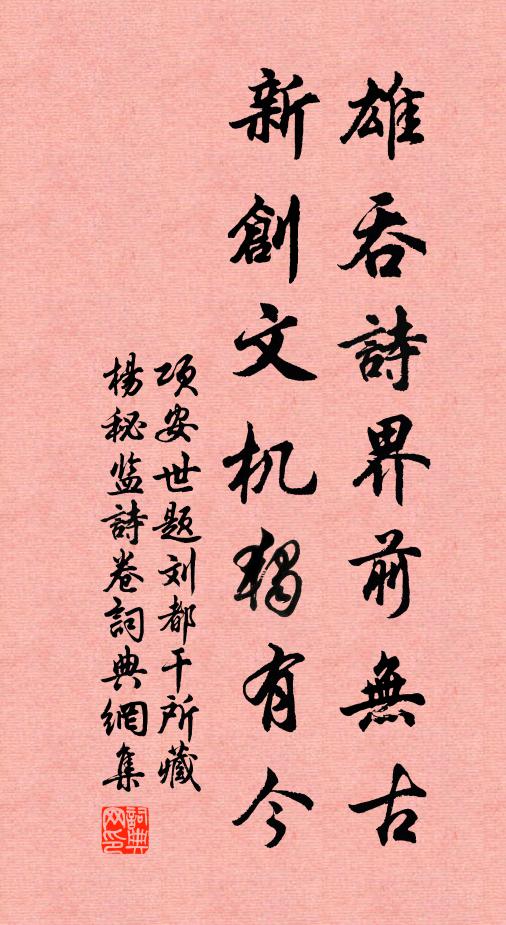 雄吞詩界前無古
新創文机獨有今
项安世题刘都干所藏
楊秘监詩卷詞典網集
詞典网印